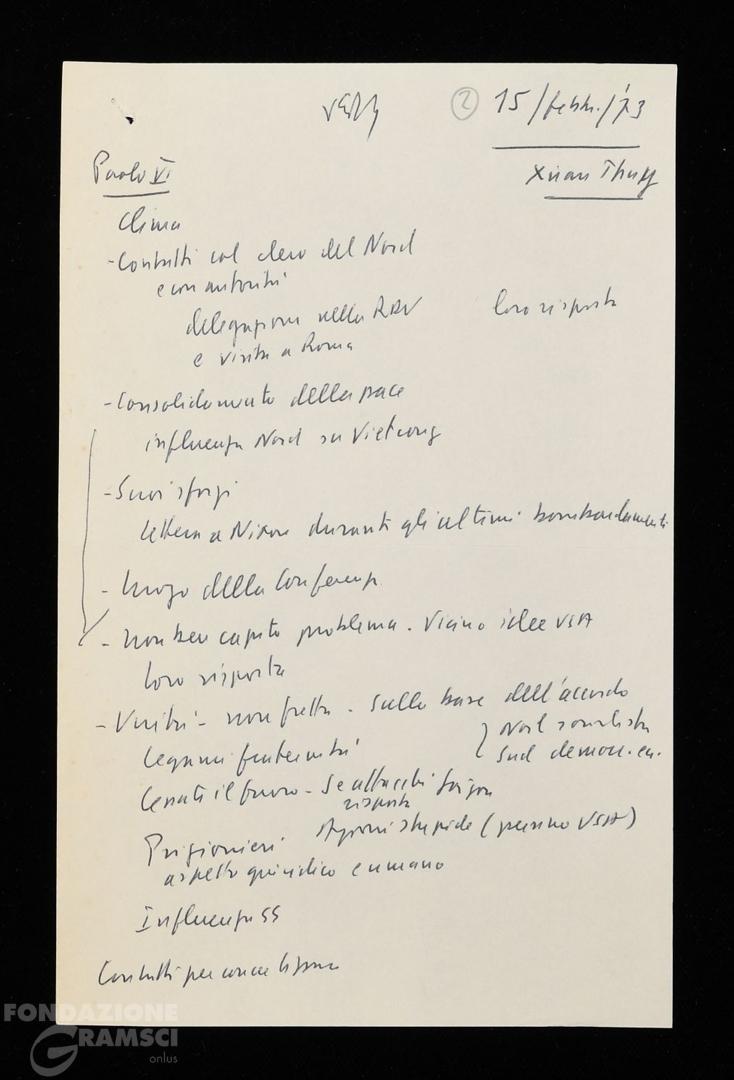 ② 15/febbr./73
Xuan Thuy
Paolo VI
Clima
- Contatti col clero del Nord
e con autorità
delegazione nella RDV loro risposta
e visita a Roma
- Consolidamento della pace
influenza Nord su Vietcong
- Suoi sforzi
lettera a Nixon durante gli ultimi bombardamenti
- luogo della Conferenza
- non ben capito problema. Vicino idee USA
loro risposta
- Unità - non fretta - sulla base dell'accordo
legami fraternità Nord socialista
Sud democ.
Cessate il fuoco - Se attacchi Saigon
risposta
Prigionieri stupide (persino USA)
aspetto giuridico e umano
Influenza SS
Contatti per
FONDAZIONE
GRAMSCI
onlus